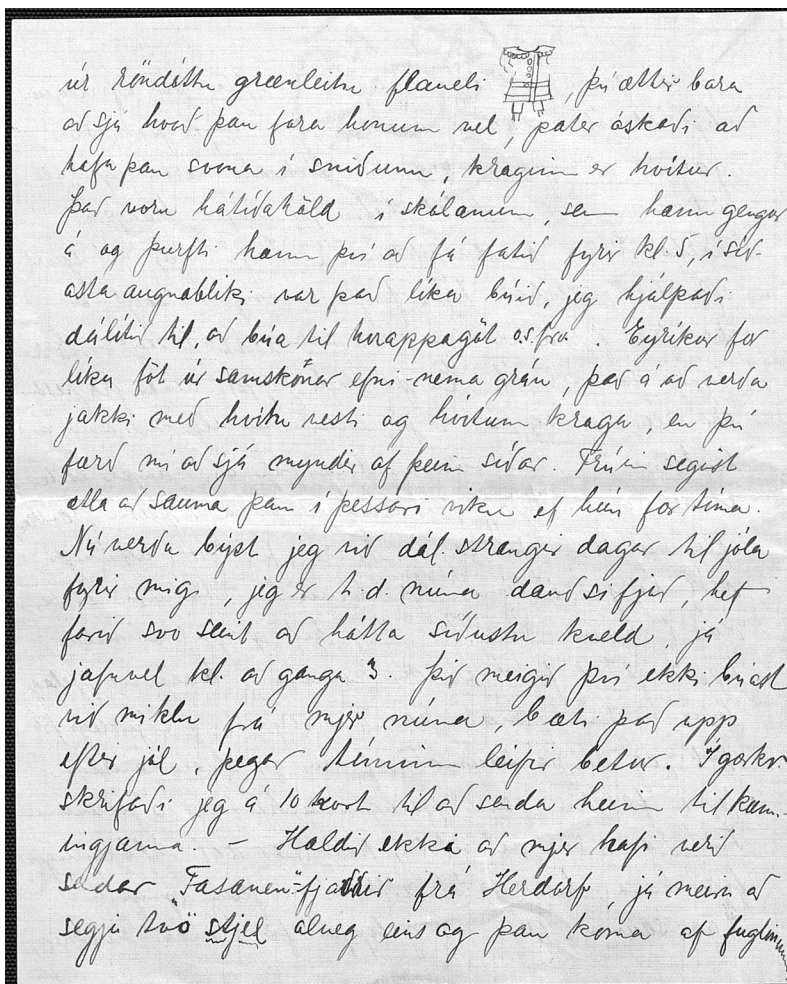 úr röndóttu grænleitu flaneli , þú ættir bara
að sjá hvað þau fara honum vel, pater óskaði að
hafa þau svona í sniðunum, kraginn er hvítur.
Það voru hátíðahöld í skólanum, sem hann gengur
á og þurfti hann því að fá fatið fyrir kl. 5, í síð-
asta augnabliki var það líka búið, jeg hjálpaði
dálítið til, að búa til hnappagöt o.s.frv. Eyríkur fær
líka föt úr samskonar efni - nema gráu, það á að verða
jakki með hvítu vesti og hvítum kraga, en þú
færð nú að sjá myndir af þeim síðar. Frúin segist
ætla að sauma þau í þessari viku ef hún fær tíma.
Nú verða býst jeg við dál. strangir dagar til jóla
fyrir mig, jeg er t.d. núna dauðsifjuð, hef
farið svo seint að hátta síðustu kveld, já
jafnvel kl. að ganga 3. Þið meigið því ekki búast
við miklu frá mjer núna, bæti það upp
eftir jól, þegar tíminn leifir betur. Í gærkv.
skrifaði jeg á 10 kort til að senda heim til kunn-
ingjanna. - Haldið ekki að mjer hafi verið
sendar "Fasanen"-fjaðrir frá Herdorf, já meira að
segja tvö stjel alveg eins og þau koma af fuglinum